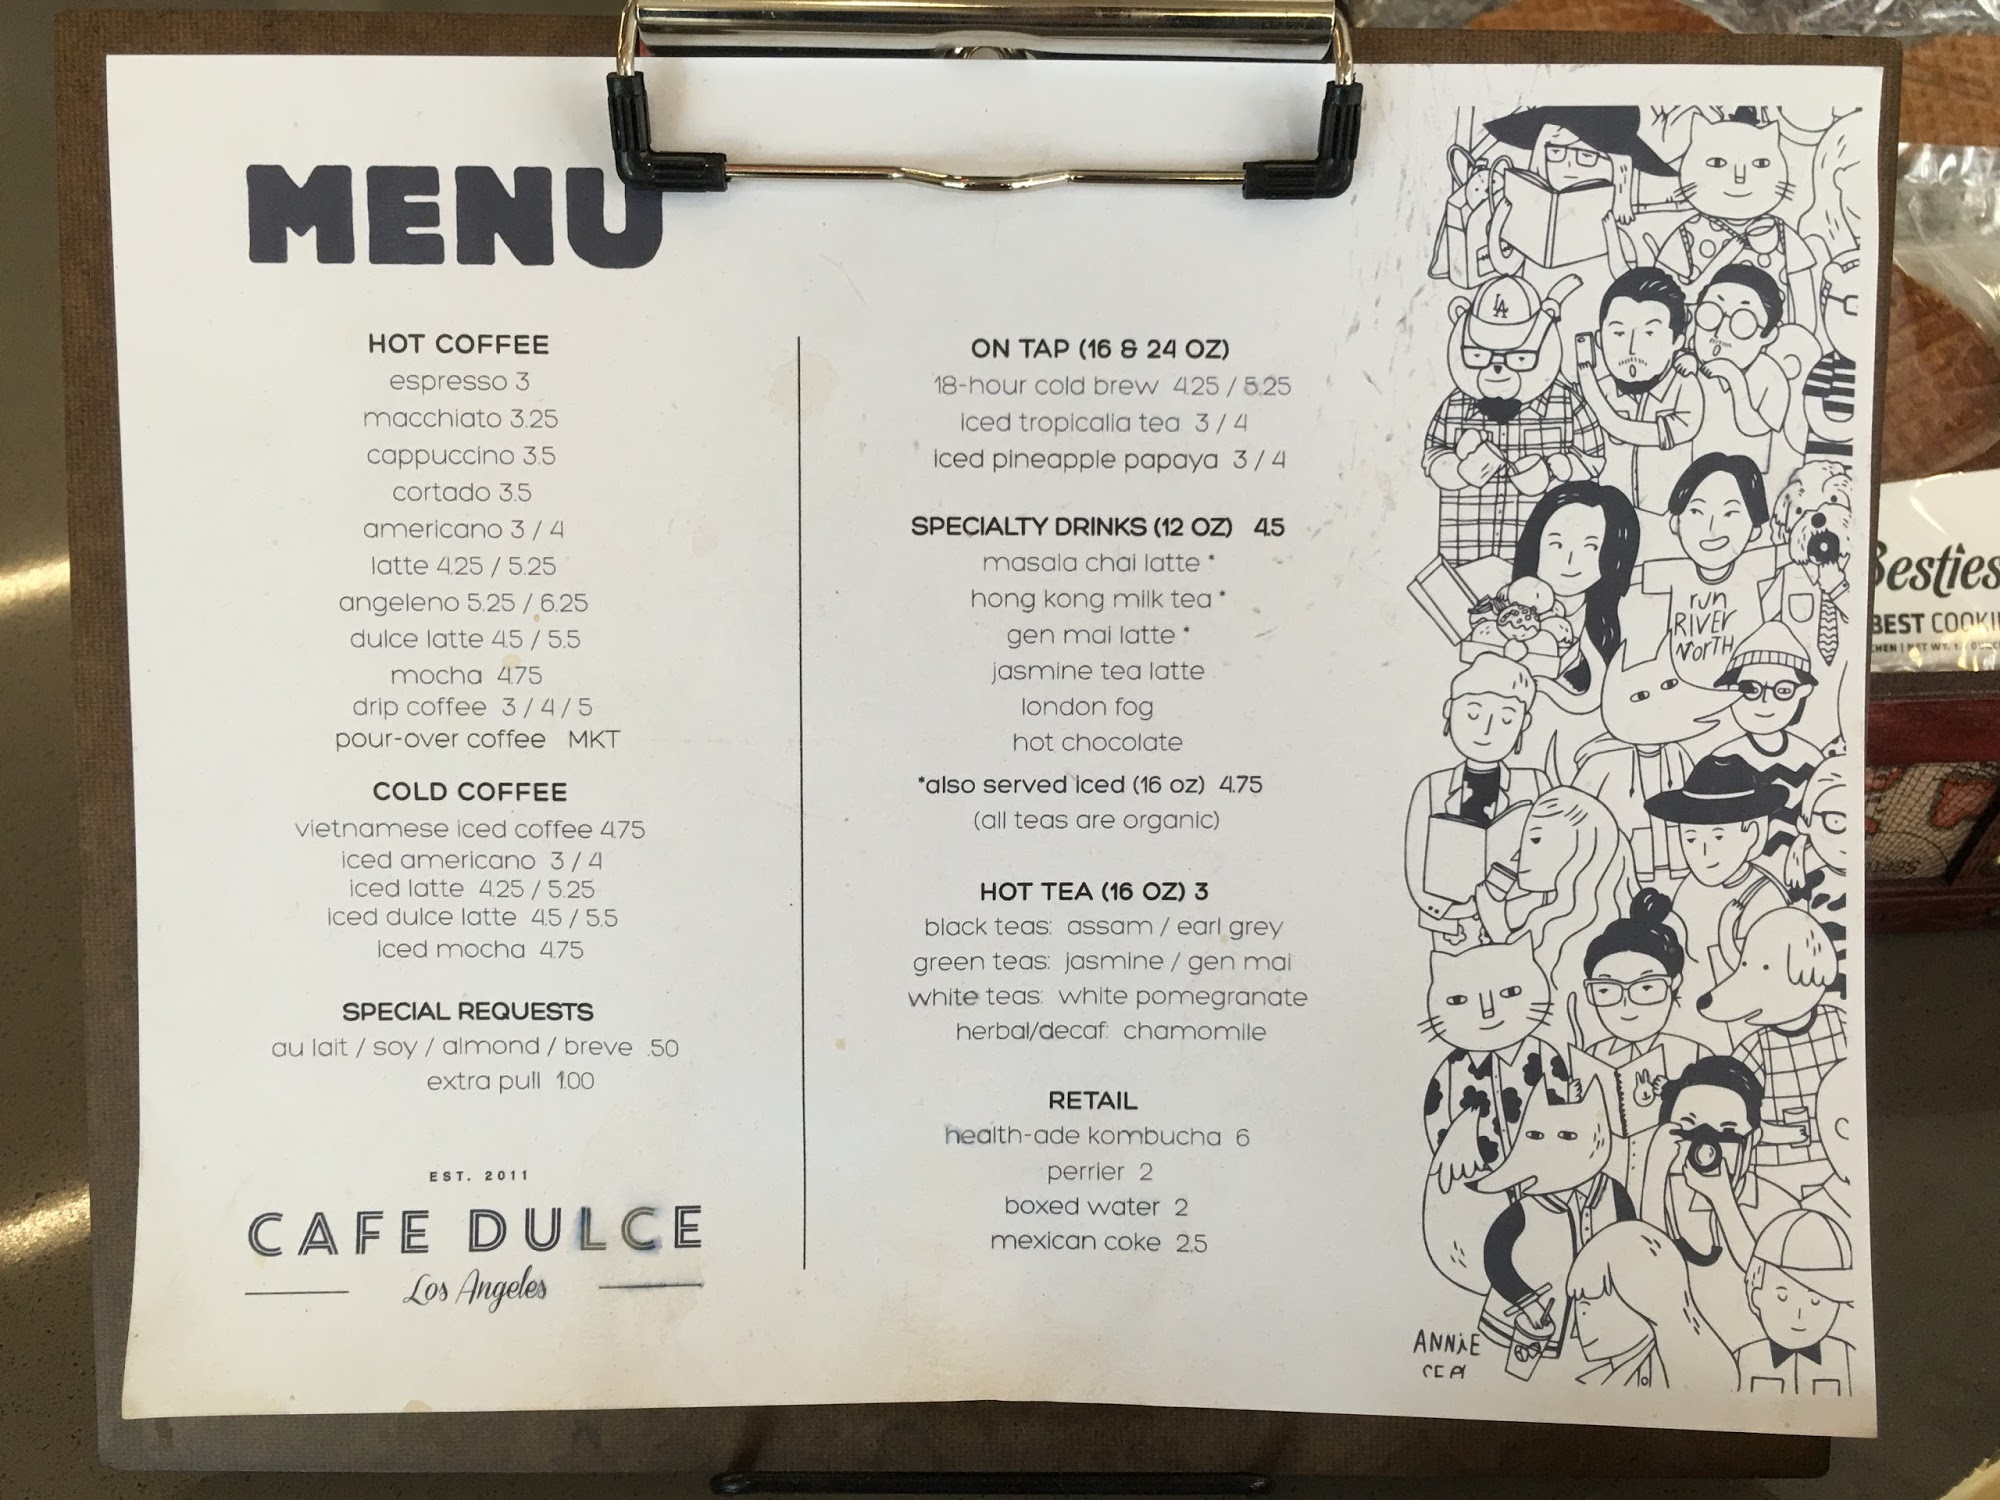 MENU
HOT COFFEE
espresso 3
macchiato 3.25
cappuccino 3.5
cortado 3.5
americano 3 / 4
latte 4.25 / 5.25
angeleno 5.25 / 6.25
dulce latte 4.5 / 5.5
mocha 4.75
drip coffee 3 / 4 / 5
pour-over coffee MKT
COLD COFFEE
vietnamese iced coffee 4.75
iced americano 3 / 4
iced latte 4.25 / 5.25
iced dulce latte 4.5 / 5.5
iced mocha 4.75
SPECIAL REQUESTS
au lait / soy / almond / breve .50
extra pull 1.00
EST. 2011
CAFE DULCE
Los Angeles
ON TAP (16 & 24 OZ)
18-hour cold brew 4.25 / 5.25
iced tropicalia tea 3 / 4
iced pineapple papaya 3 / 4
SPECIALTY DRINKS (12 OZ) 4.5
masala chai latte *
hong kong milk tea *
gen mai latte *
jasmine tea latte
london fog
hot chocolate
*also served iced (16 oz) 4.75
(all teas are organic)
HOT TEA (16 OZ) 3
black teas: assam / earl grey
green teas: jasmine / gen mai
white teas: white pomegranate
herbal/decaf: chamomile
RETAIL
health-ade kombucha 6
perrier 2
boxed water 2
mexican coke 2.5
LA
run
RIVER
NORTH
ANNiE
Besties
BEST COOKI
NET WT.